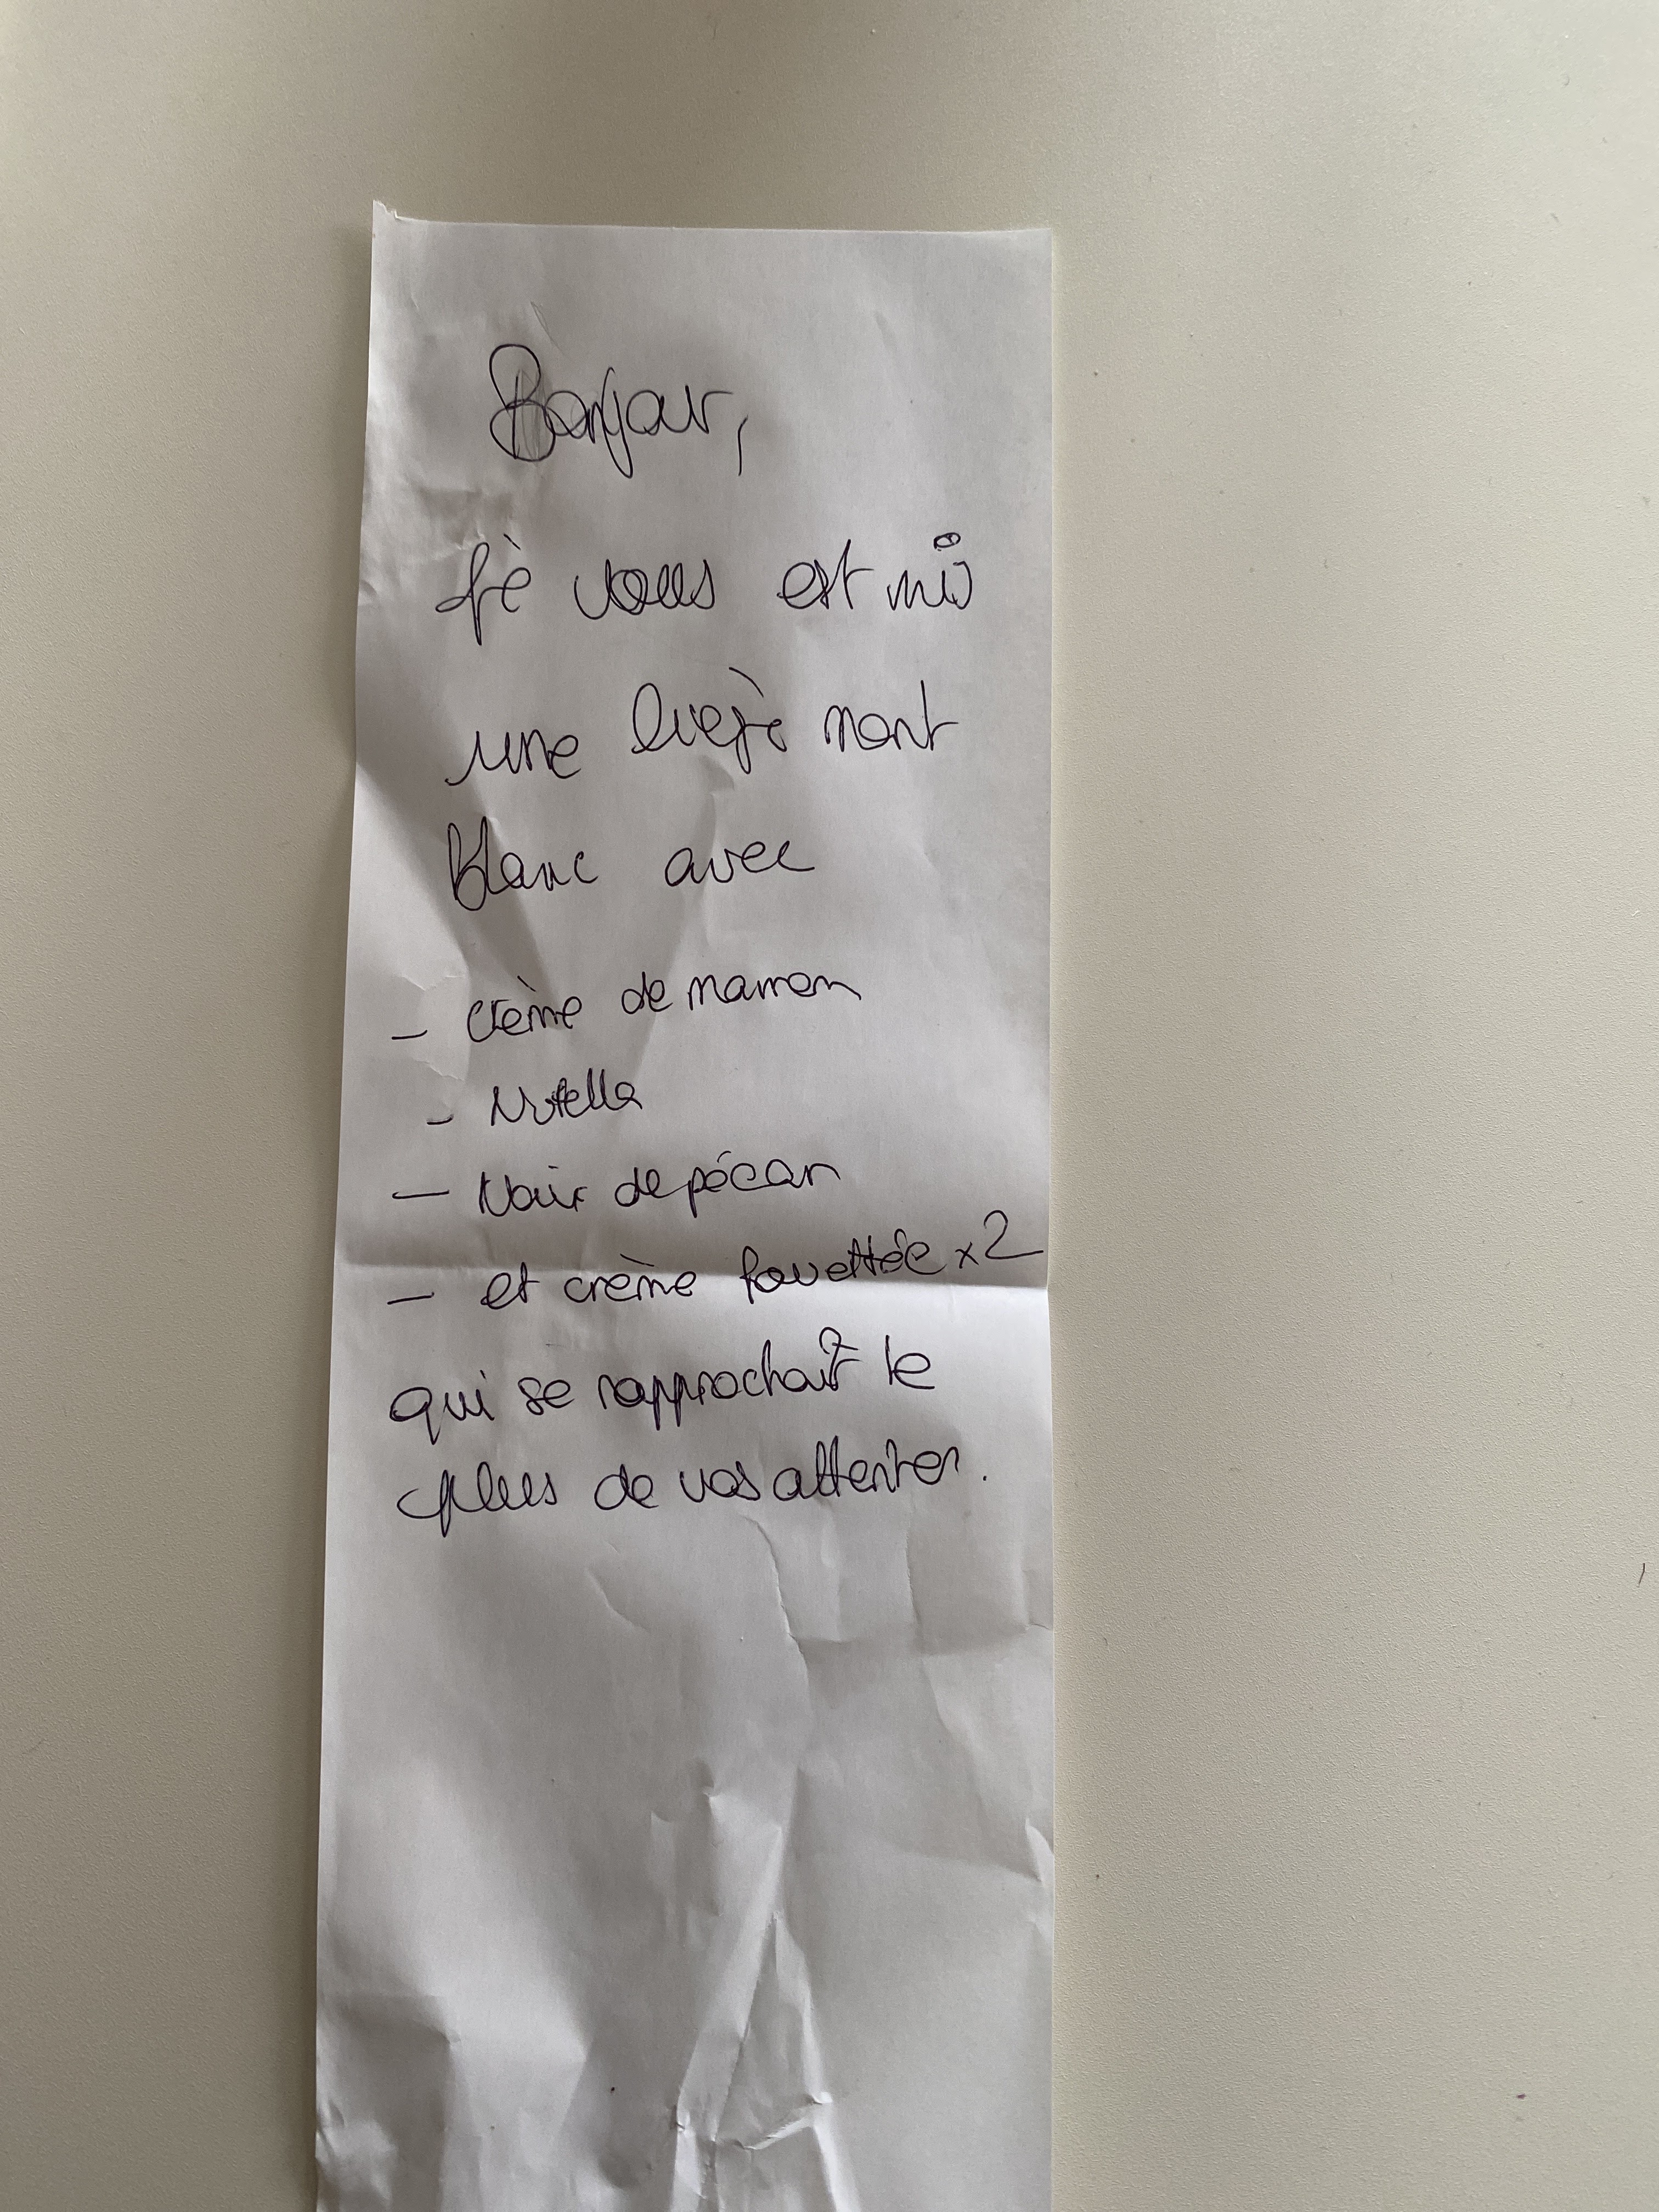 Bonjour,
Je vous est mis
une liégè mont
blanc avec
- crème de marron
- Nutella
- Noix de pécan
- et crème fouettée x2
qui se rapprochait le
plus de vos attentes.